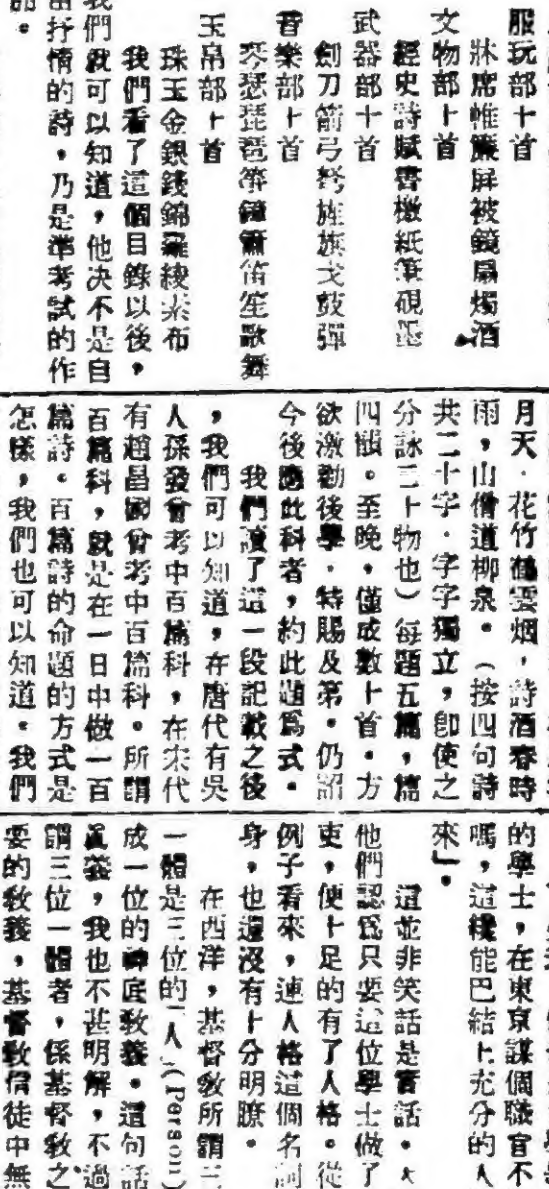 服玩部十首
牀席帷簾屏被鏡扇燭酒
文物部十首
經史詩賦書檄紙筆硯墨
武器部十首
劍刀箭弓弩旌旗戈鼓彈
音樂部十首
琴瑟琵琶箏鐘簫笛笙歌舞
玉帛部十首
珠玉金銀錢錦羅綾素布
我們看了這個目錄以後,
我們就可以知道,他决不是自
抒情的詩,乃是準考試的作
部。
月天.花竹鶴雲烟,詩酒春時
雨,山僧道柳泉。(按四句詩
共二十字.字字獨立,卽使之
分詠二十物也)每題五篇,篇
四韻。至晚,僅成數十首.方
欲激勸後學.特賜及第。仍詔
今後應此科者,約此題爲式。
我們讀了這一段記載之後
,我們可以知道,在唐代有吳
人孫發曾考中百篇科,在宋代
有趙昌國曾考中百篇科。所謂
百篇科,就是在一日中做一百
篇詩。百篇詩的命題的方式是
怎樣,我們也可以知道。我們
的學士,在東京謀個職官不
嗎,這樣能巴結上充分的人
來」。
這並非笑話是實話。人
他們認爲只要這位學士做了
吏,便十足的有了人格。從
例子看來,連人格這個名詞
身,也還沒有十分明瞭。
在西洋,基督敎所謂三
一體是三位的「人」(Person)
成一位的神底敎義。這句話
眞義,我也不甚明解,不過
謂三位一體者,係基督敎之
要的敎義,基督敎信徒中無